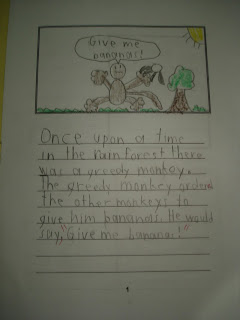 Give me
bananas!
Once upon a time
in the rain forest there
was a greedy monkey.
The greedy monkey ordered
the other monkeys to
give him bananas. He would
say, "Give me banana!"